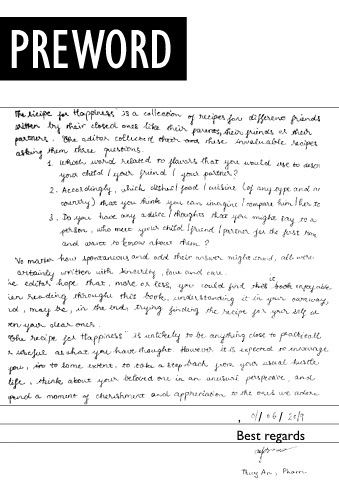 PREWORD
"The recipe for Happiness" is a collection of recipes for different friends
written by their closed ones like their parents, their friends or their
partners. The editor collected these invaluable recipes
asking them three questions.
1. Which word related to flavors that you would use to
your child / your friend / your partner?
2. Accordingly, which dishes / food / cuisine (of any type and
country) that you think you can imagine / compare him / her to
3. Do you have any advice / thoughts that you might say to a
person, who meet your child / friend / partner for the first
and want to know about them?
No matter how spontaneous and odd their answer might sound, all were
certainly written with sincerity, love and care.
editor hope that, more or less, you could find this book enjoyable
reading through this book, understanding it in your own way,
may be, in the end, trying finding the recipe for your self or
your dear ones.
"The recipe for Happiness" is unlikely to be anything close to
useful as what you have thought. However it is expected to encourage
you, in to some extent, to take a step back from your usual hustle
life, think about your beloved one in an unusual perspective, and
spend a moment of cherishment and appreciation to the ones we adore
Best regards
Thuy An, Pham